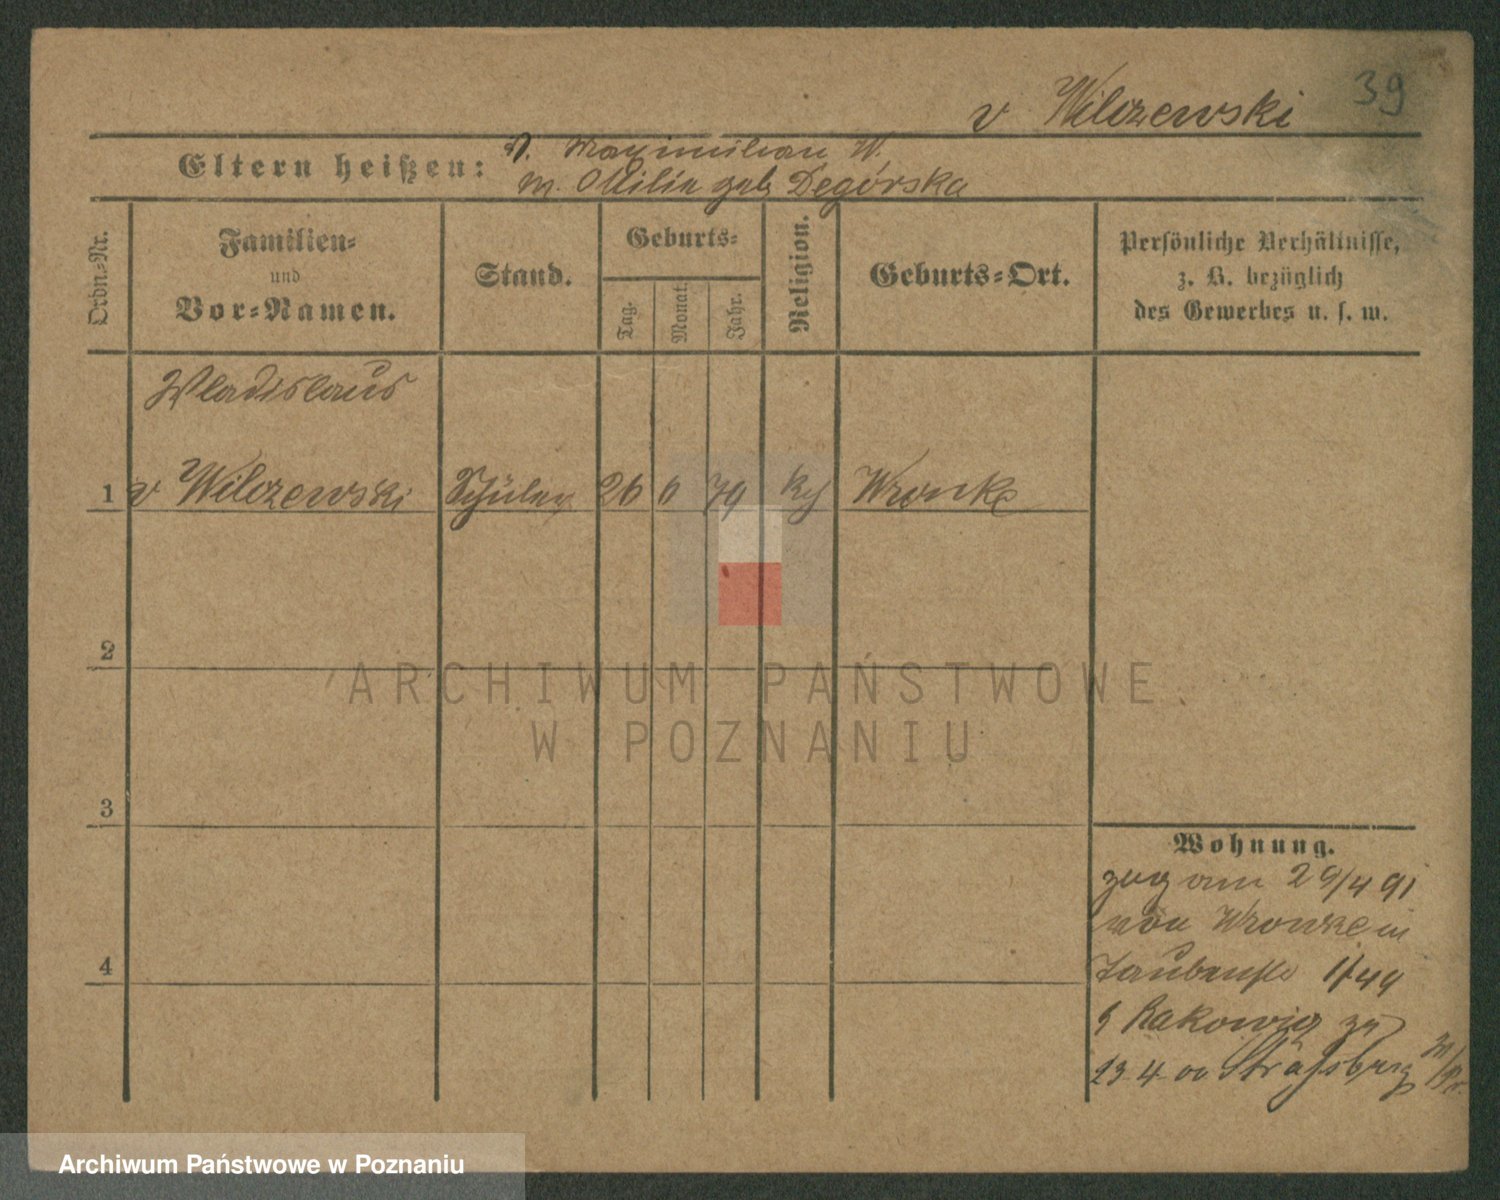 39
v Wilczewski
Eltern heißen:
V. Maximilian W.
M. Ottilie geb Degórska
Ordn.=Nr.
Familien=
und
Vor=Namen.
Stand.
Geburts=
Tag.
Monat.
Jahr.
Religion.
Geburts=Ort.
Persönliche Verhältnisse,
z. B. bezüglich
des Gewerbes u. s. w.
Wladislaus
1 v Wilczewski Schüler 26 6 79 Wronke
2
3
4
Wohnung.
zug am 29/4 91
von Wronke in
Taubenstr
23-4-00 Strassburg
ARCHIWUM PAŃSTWOWE
W POZNANIU
Archiwum Państwowe w Poznaniu